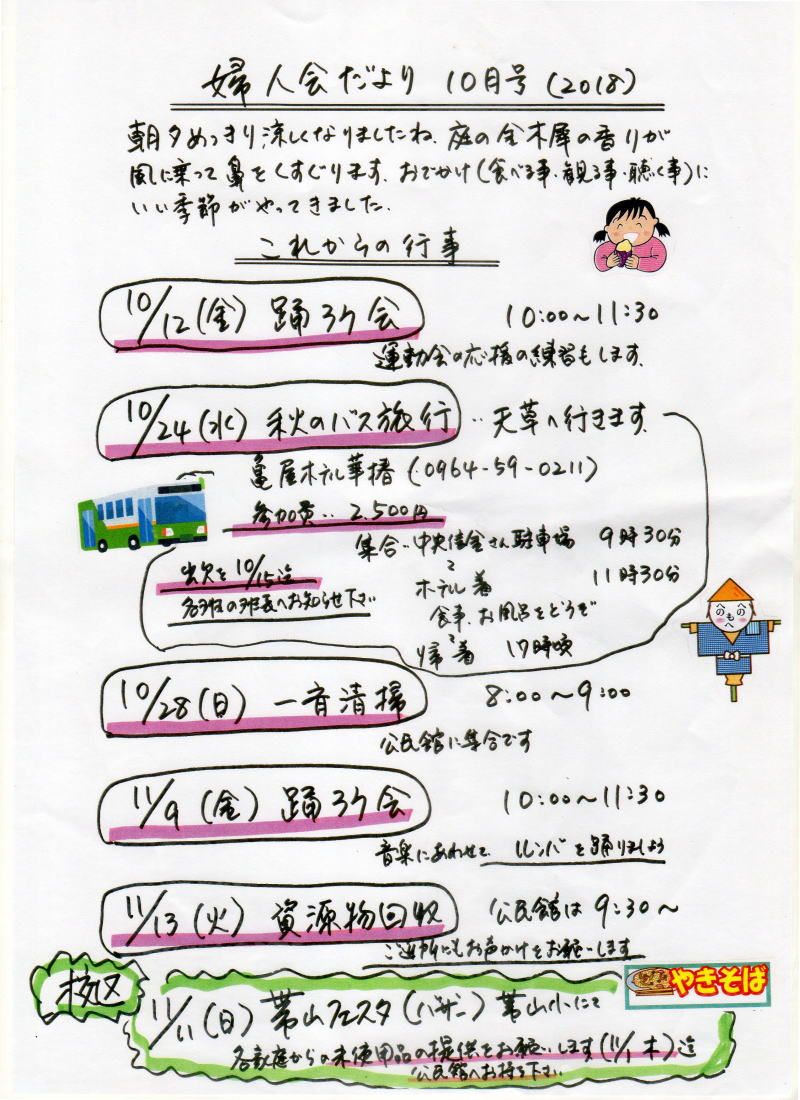 婦人会だより 10月号(2018)
朝夕めっきり涼しくなりましたね。庭の金木犀の香りが
風に乗って鼻をくすぐります。おでかけ(食べる事・観る事・聴く事)に
いい季節がやってきました。
これからの行事
10/12(金) 踊ろう会 10:00~11:30
運動会の応援の練習もします。
10/24(水) 秋のバス旅行 ‥天草へ行きます。
亀屋ホテル華椿(0964-59-0211)
参加費‥2,500円
集合‥中央信金さん駐車場 9時30分
出欠を10/15迄
各班の班長へお知らせ下さい
ホテル着 11時30分
食事、お風呂をどうぞ
帰着 17時頃
へのへのも
10/28(日) 一斉清掃 8:00~9:00
公民館に集合です
11/9(金) 踊ろう会 10:00~11:30
音楽にあわせて、ルンバを踊りましょう
11/13(火) 資源物回収 公民館は9:30~
ご近所にもお声かけをお願いします
やきそば
校区
11/11(日) 帯山フェスタ(バザー) 帯山小にて
各家庭からの未使用品の提供をお願いします(11/1 木)迄
公民館へお持ち下さい